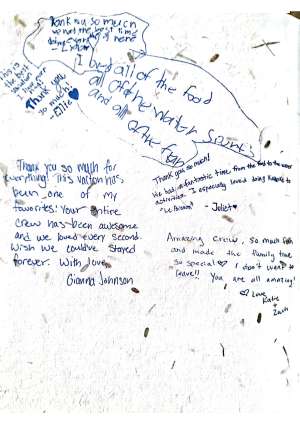 Thank you so much
the best time
I loved all of the food
all of the water
and all
of the
This is
the best
Thank you
so much
-Ellie
Thank you so much for
everything! This vaction has
been one of my
favorites! Your entire
crew has been awesome
and we loved every second.
Wish we couldve stayed
forever. With love,
Gianna Johnson
Thank you so much!
We had a fantastic time from the food to the water
activities. I especially loved doing Karaoke to
- Joliet
Amazing crew, so much fun
and made the family time
so special I don't want to
leave!! You are all amazing!
Love,
Katie
+
Zach